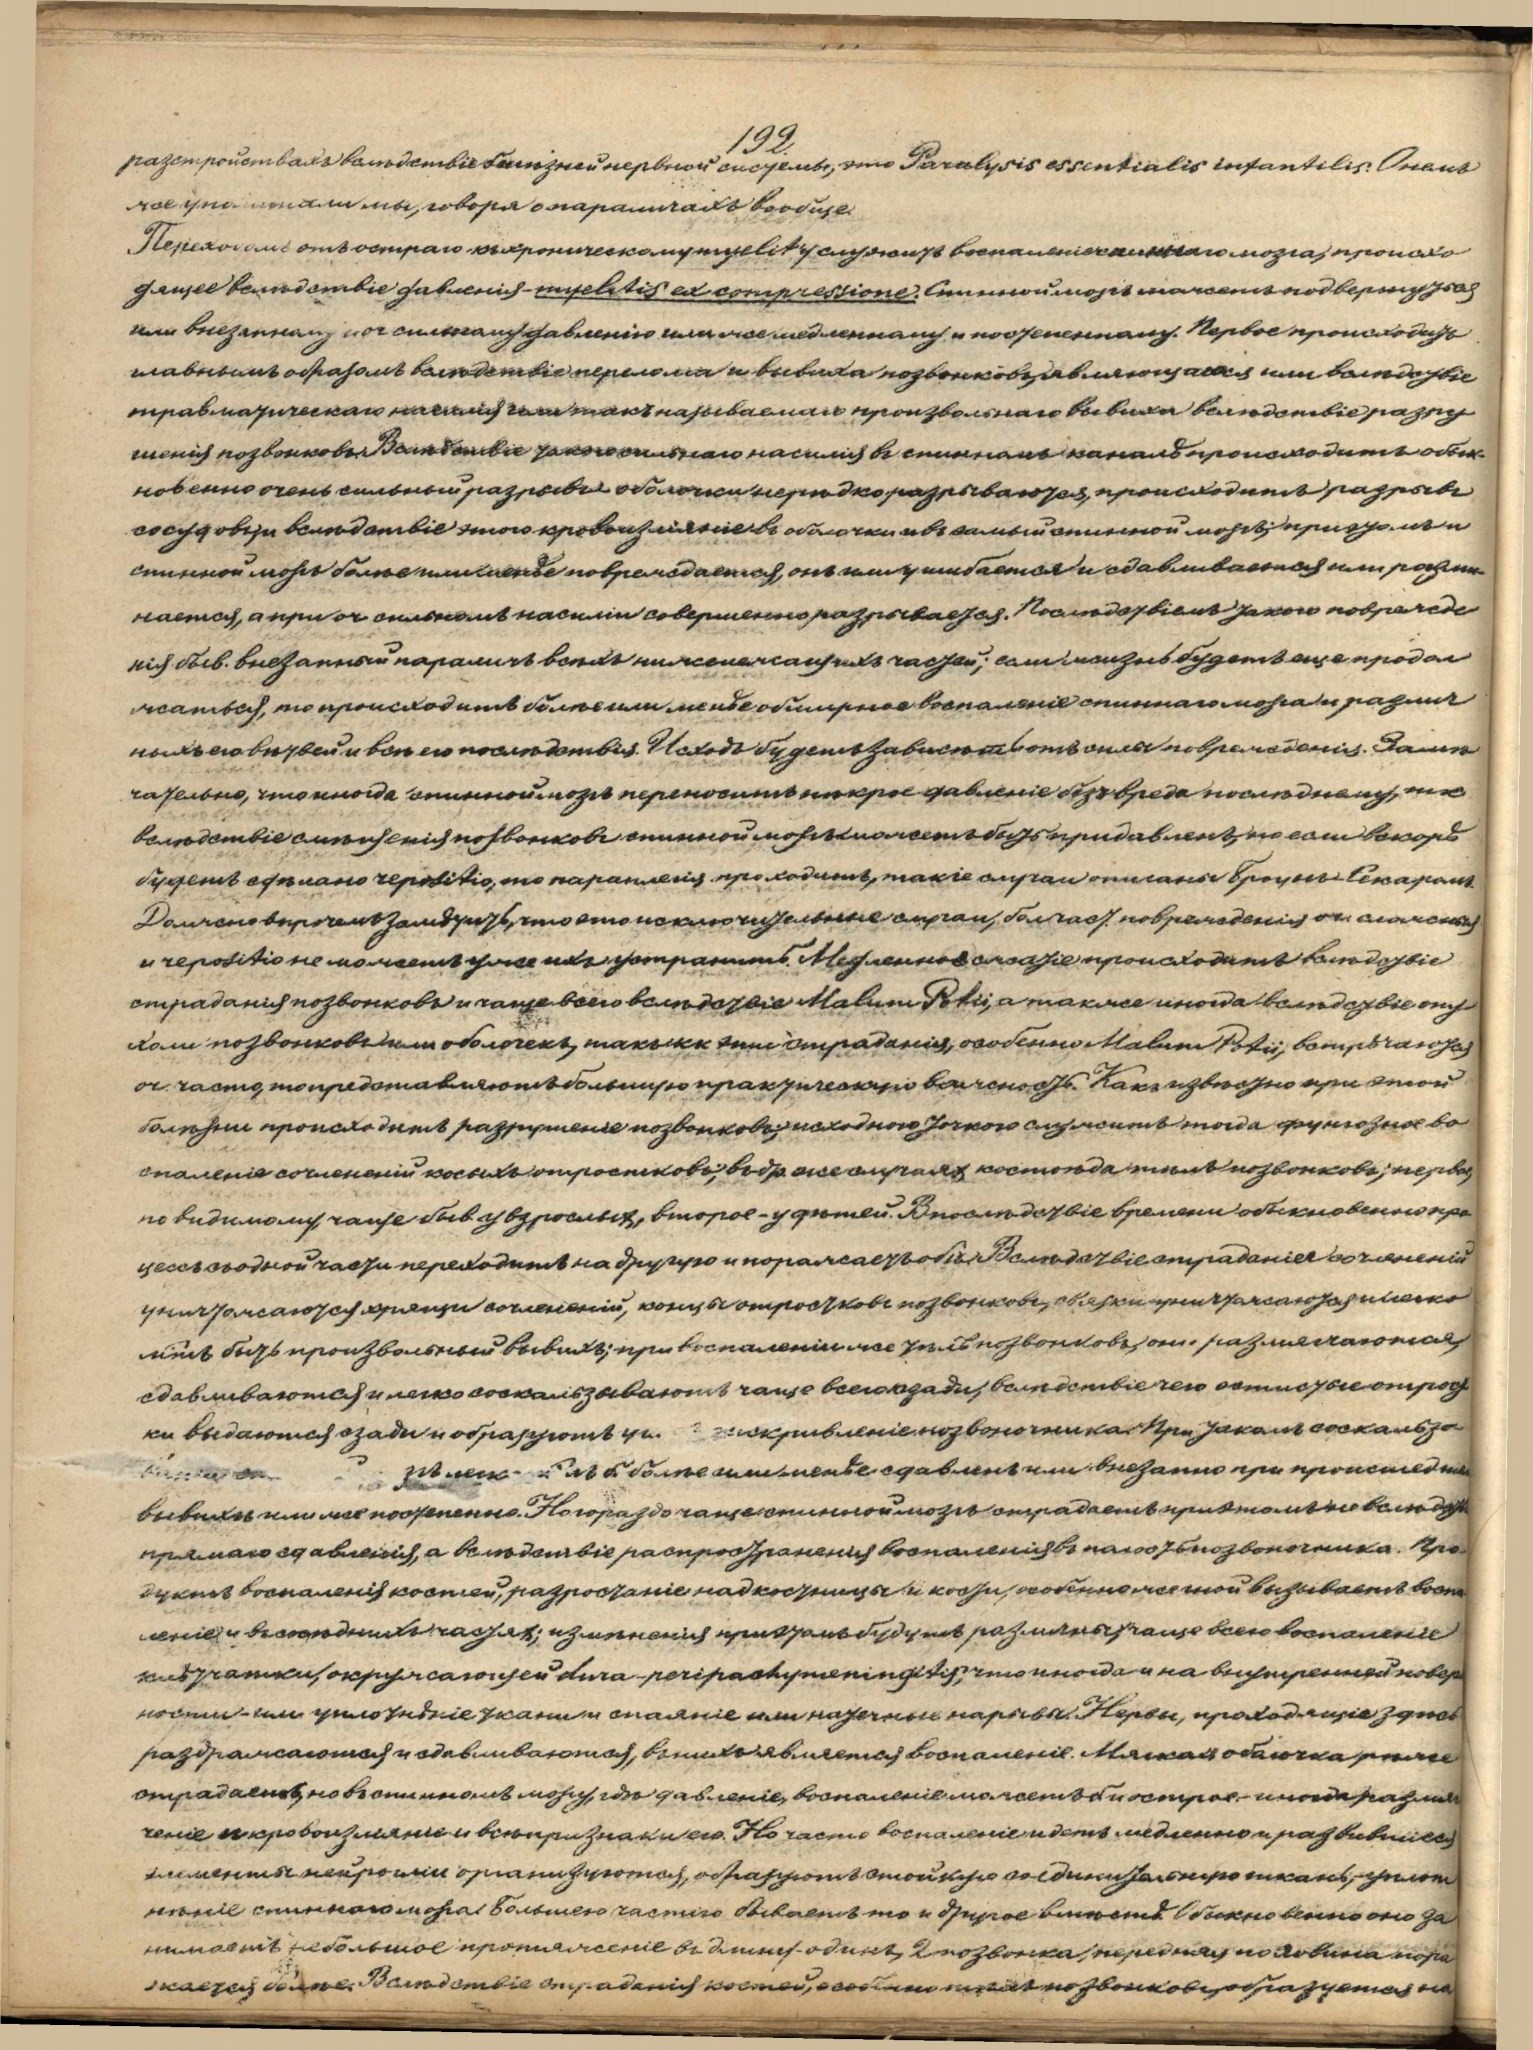 192.
разстройствахъ вслѣдствіе болѣзней нервной системы, это Paralysis essentialis infantilis. О немъ
же упоминали мы, говоря о параличахъ вообще.
Переходомъ отъ остраго къ хроническому myelitʼу служитъ воспаленіе спиннаго мозга, происхо
дящее вслѣдствіе давленія - myelitis ex compressione. Спинной мозгъ можетъ подвергнуться
или внезапному и оч сильному давленію или же медленному и постепенному. Первое происходитъ
главнымъ образомъ вслѣдствіе перелома и вывиха позвонковъ, являющагося или вслѣдствіе
травматическаго насилія или такъ называемаго произвольнаго вывиха вслѣдствіе разру
шенія позвонковъ. Вслѣдствіе такого сильнаго насилія въ спинномъ каналѣ происходитъ обык-
новенно очень сильный разрывъ оболочки нерѣдко разрываются, происходитъ разрывъ
сосудовъ, и вслѣдствіе этого кровоизліяніе въ оболочки и въ самый спинной мозгъ; при этомъ и
спинной мозгъ болѣе или менѣе повреждается, онъ или ушибается и сдавливается или размин-
нается, а при оч сильномъ насиліи совершенно разрывается. Послѣдствіемъ такого поврежде
нія быв. внезапный параличъ всѣхъ нижележащихъ частей; если жизнь будетъ еще продол
жаться, то происходитъ болѣе или менѣе обширное воспаленіе спиннаго мозга и различ
ныхъ его вѣтвей и всѣ его послѣдствія. Исходъ будетъ зависѣть отъ силы поврежденія. Замѣ
чательно, что иногда спинной мозгъ переноситъ нѣкрое давленіе безъ вреда послѣднему, т.к
вслѣдствіе смѣщенія позвонковъ спинной мозгъ можетъ быть придавленъ, но если вскорѣ
будетъ сдѣлано repositio, то параплегія проходитъ, такіе случаи описаны Броунъ-Секаромъ.
Должно впрочемъ замѣтить, что это исключительные случаи, бол част. поврежденія оч. сложныя
и repositio не можетъ уже ихъ устранить. Медленное сжатіе происходитъ вслѣдствіе
страданія позвонковъ и чаще всего вслѣдствіе Malum Potii, а также иногда вслѣдствіе опу
холи позвонковъ или оболочекъ, такъ кк эти страданія, особенно Malum Potii, встрѣчаются
оч. часто, то представляютъ большую практическую важность. Какъ извѣстно при этой
болѣзни происходитъ разрушеніе позвонковъ; исходною точкою служитъ тогда фунгозное во
спаленіе сочлененій косыхъ отростковъ; въ др. же случаяхъ костоѣда тѣлъ позвонковъ; первое,
по видимому чаще быв. у взрослыхъ, второе - у дѣтей. Впослѣдствіе времени обыкновенно про
цессъ съ одной части переходитъ на другую и поражаетъ обѣ. Вслѣдствіе страданія сочлененій
уничтожаются хрящи сочлененій, концы отростковъ позвонковъ, связки уничтожаются и легко
мтъ быть произвольный вывихъ; при воспаленіи же тѣлъ позвонковъ, они размягчаются,
сдавливаются и легко соскальзываютъ чаще всего кзади, вслѣдствіе чего остистые отрост
ки выдаются сзади и образуютъ искривленіе позвоночника. При такомъ соскальзы
болѣе или менѣе сдавленъ или внезапно при происшедшемъ
вывихѣ или же постепенно. Но гораздо чаще спинной мозгъ страдаетъ при этомъ не вслѣдств
прямаго сдавленія, а вслѣдствіе распространенія воспаленія въ полость позвоночника. Про-
дуктъ воспаленія костей, разростаніе надкостницы и кости, особенно же гной вызываетъ воспа
леніе и въ сосѣднихъ частяхъ; измѣненія при этомъ будутъ различны, чаще всего воспаленіе
клѣтчатки, окружающей dura - peripachymeningitis, что иногда и на внутренней повер
ности - или уплотнѣніе ткани и спаяніе или натечные нарывы. Нервы, проходящіе здѣсь
раздражаются и сдавливаются, въ нихъ является воспаленіе. Мягкая оболочка рѣже
страдаетъ, но въ спинномъ мозгу, гдѣ давленіе, воспаленіе можетъ б. и острое - иногда размяг
ченіе и кровоизліяніе и всѣ признаки его. Но часто воспаленіе идетъ медленно и развившіеся
элементы нейрогліи организуются, образуютъ стойкую соединительную ткань, уплот
нѣніе спиннаго мозга. Большею частію бываетъ то и другое вмѣстѣ. Обыкновенно оно за
нимаетъ небольшое протяженіе въ длину - одинъ, 2 позвонка, передняя половина пора
жается болѣе. Вслѣдствіе страданія костей, особенно тѣлъ позвонковъ, образуется на